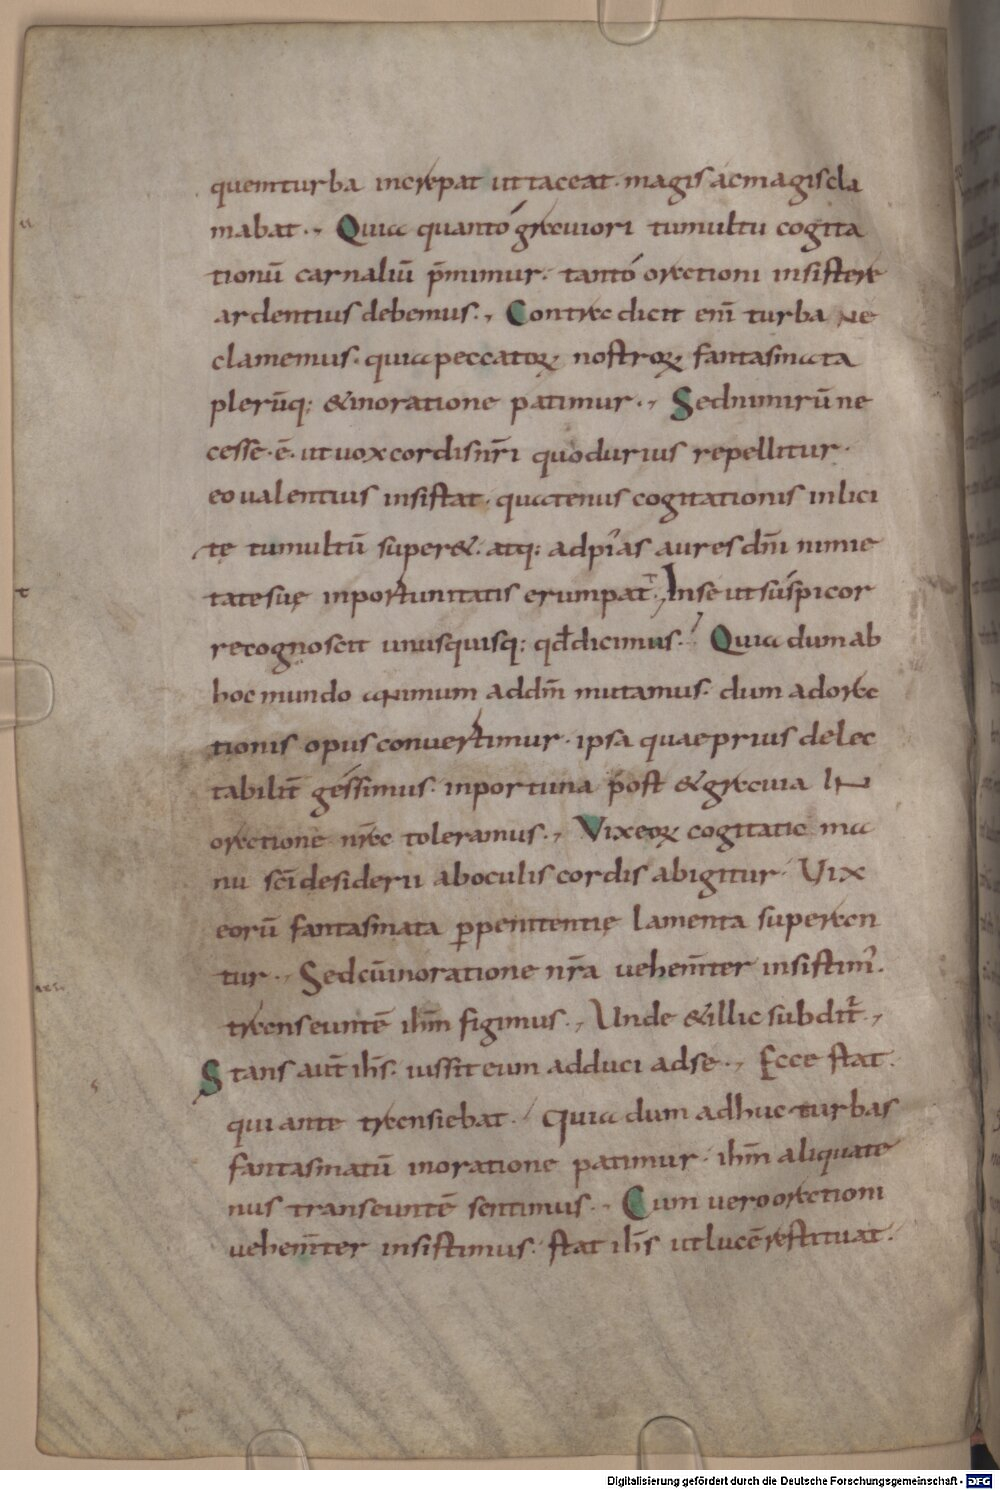 quem turba increpat ut taceat· magis ác magis cla
mabat·, Quia quantó grauiori tumultu cogita
tionū carnaliū p̄mimur· tantó orationi insistere
ardentius debemus·, Contradicit eni̅ turba ne
clamemus· quia peccatoꝝ nostroꝝ fantasmata
plerūq; & in oratione patimur·, Sed nimirū ne
cesse·ē· ut uox cordis nr̄i quo durius repellitur·
eo ualentius insistat· quatenus cogitationis inlici
tę tumultū super&· atq; ad pias aures dm̄ nimie
tate suę inportunitatis erumpat·, In se ut súspicor
recognoscit unusquisq; qđ dicimus·, Quia dum ab
hoc mundo animum ad dm̄ mutamus· dum ad ora
tionis opus conuertimur· ipsa quae prius delec
tabilit̄ géssimus· inportuna póst & grauia in
oratione nr̄a toleramus·, Vix eoꝝ cogitatio ma
nu sc̄i desiderii ab oculis cordis abigitur· Uix
eorū fantasmata ꝑ penitentię lamenta superan
tur·, Sed cū in oratione nr̄a uehem̄ter insistim̓·
transeuntē ihm̄ figimus·, Unde & illic subdit̄·,
Stans aut̄ ih̄s· iussit eum adduci ad se·, Ecce stat·
qui ante transiebat· Quia dum adhuc turbas
fantasmatū in oratione patimur· ihm̄ aliquate
nus transeuntē sentimus·, Cum uero orationi
uehem̄ter insistimus· stat ih̄s ut lucē restituat·
Digitalisierung gefördert durch die Deutsche Forschungsgemeinschaft - DFG